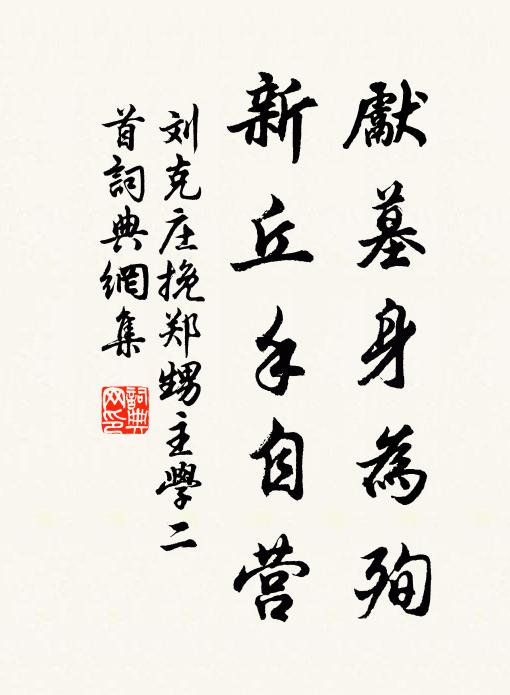 獻墓身為殉
新丘手自营
刘克庄挽郑甥主學二
首詞典網集
詞典网印